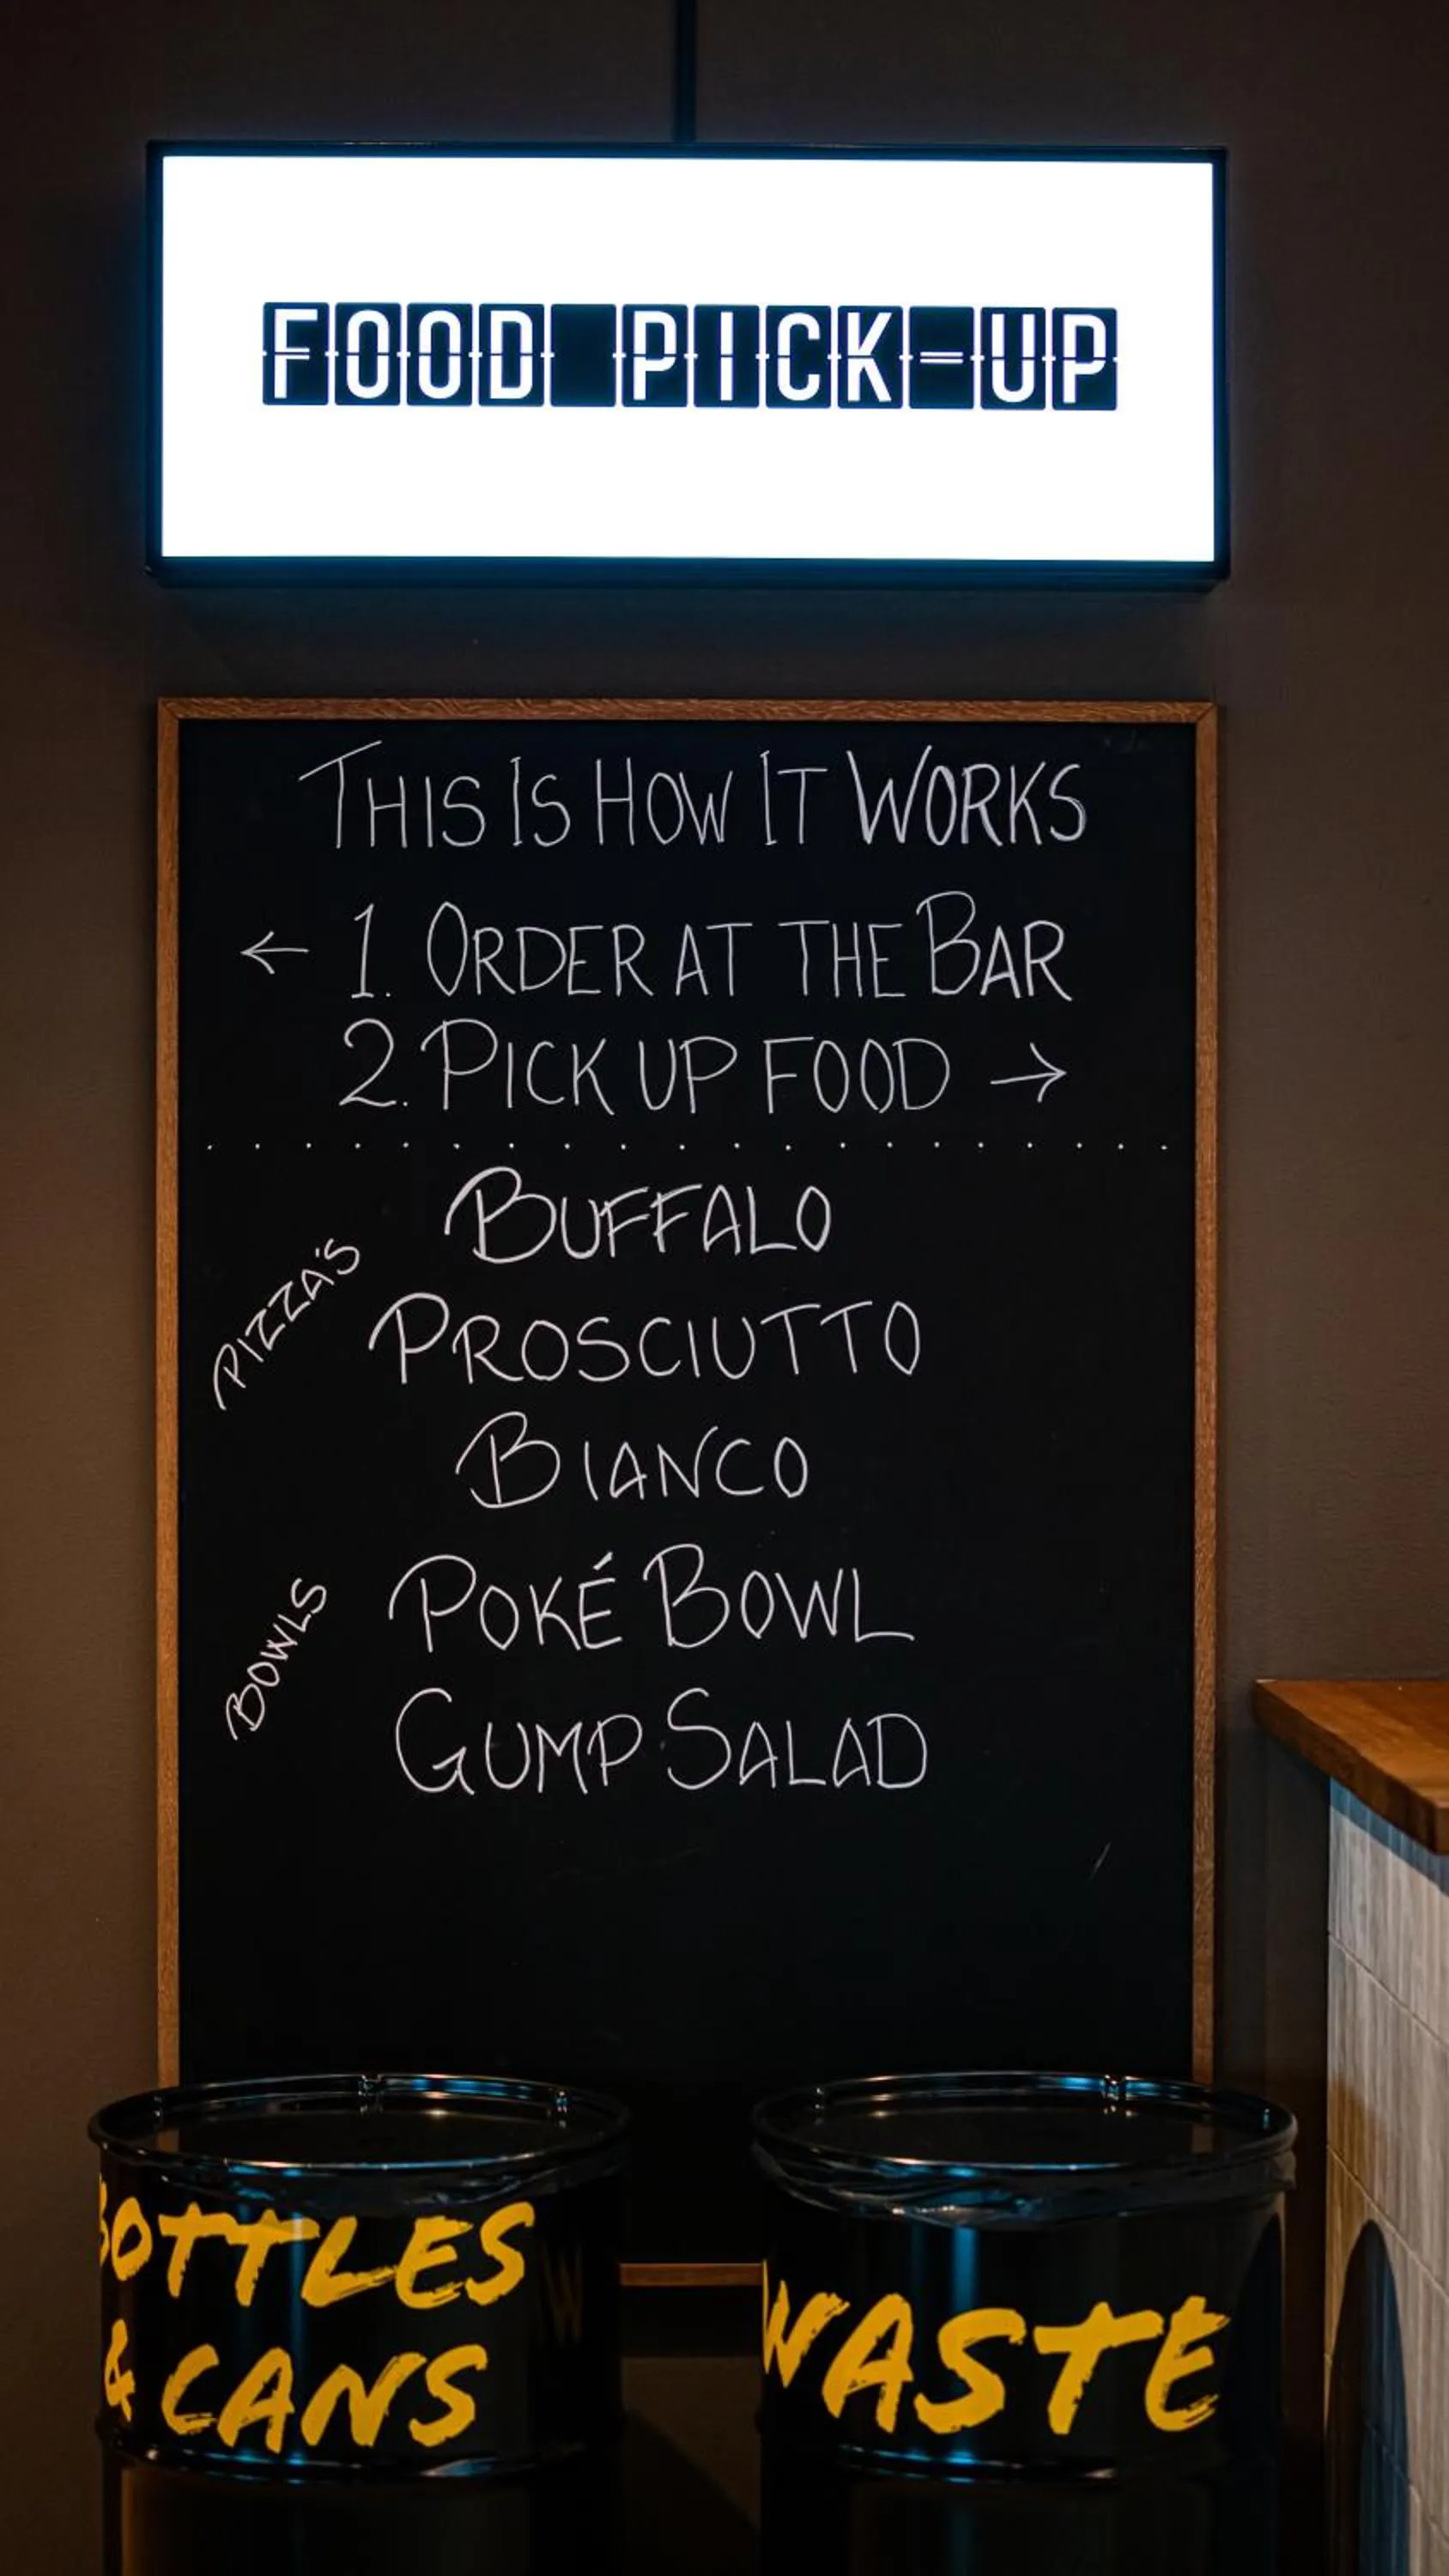 FOOD PICK-UP
THIS IS HOW IT WORKS
← 1. ORDER AT THE BAR
2. PICK UP FOOD →
PIZZA'S
BUFFALO
PROSCIUTTO
BIANCO
BOWLS
POKÉ BOWL
GUMP SALAD
BOTTLES
& CANS
WASTE